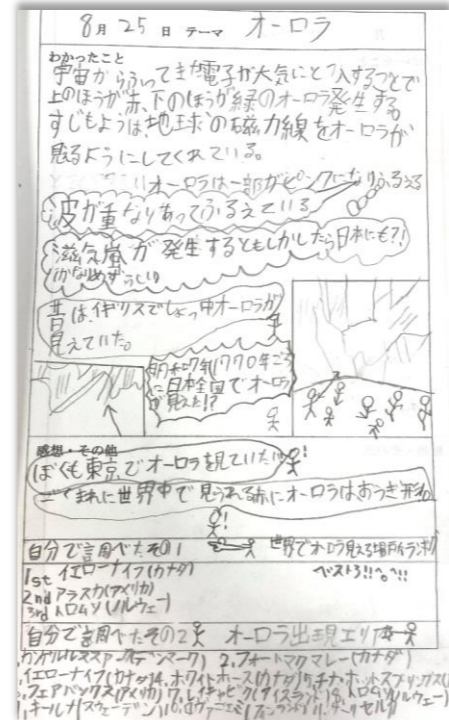 8月25日 テーマ オーロラ
わかったこと
宇宙からふってきた電子が大気にとつ入することで
上のほうが赤、下のほうが緑のオーロラ発生する
すじもようは地球の磁力線をオーロラが
見るようにしてくれている。
オーロラは一部がピンクになりふるえる
波が重なりあってふるえている
滋気嵐が発生するともしかしたら日本にも?!
かなりめずらしい
昔は、イギリスでしょっ中オーロラが
見えていた。
明和7年1770年ごろ
に日本全国でオーロラ
が見えた!?
感想・その他
ぼくも東京でオーロラを見ていたい!
ごくまれに世界中で見られる赤にオーロラはおうぎ形
自分で調べたその1 世界でオーロラ見える場所ランキング
ベスト3!!
1st イエローナイフ(カナダ)
2nd アラスカ(アメリカ)
3rd トロムソ(ノルウェー)
自分で調べたその2 オーロラ出現エリア
1.カンゲルルススアーク(デンマーク) 2.フォートマクマレー(カナダ)
イエローナイフ(カナダ)4.ホワイトホース(カナダ)5.チナ・ホットスプリングス(
6.フェアバンクス(アメリカ)7.レイキャビク(アイスランド)8.トロムソ(ノルウェー)
9.キールナ(スウェーデン)10.ロヴァニエミ(フィンランド)11.サーリセルカ